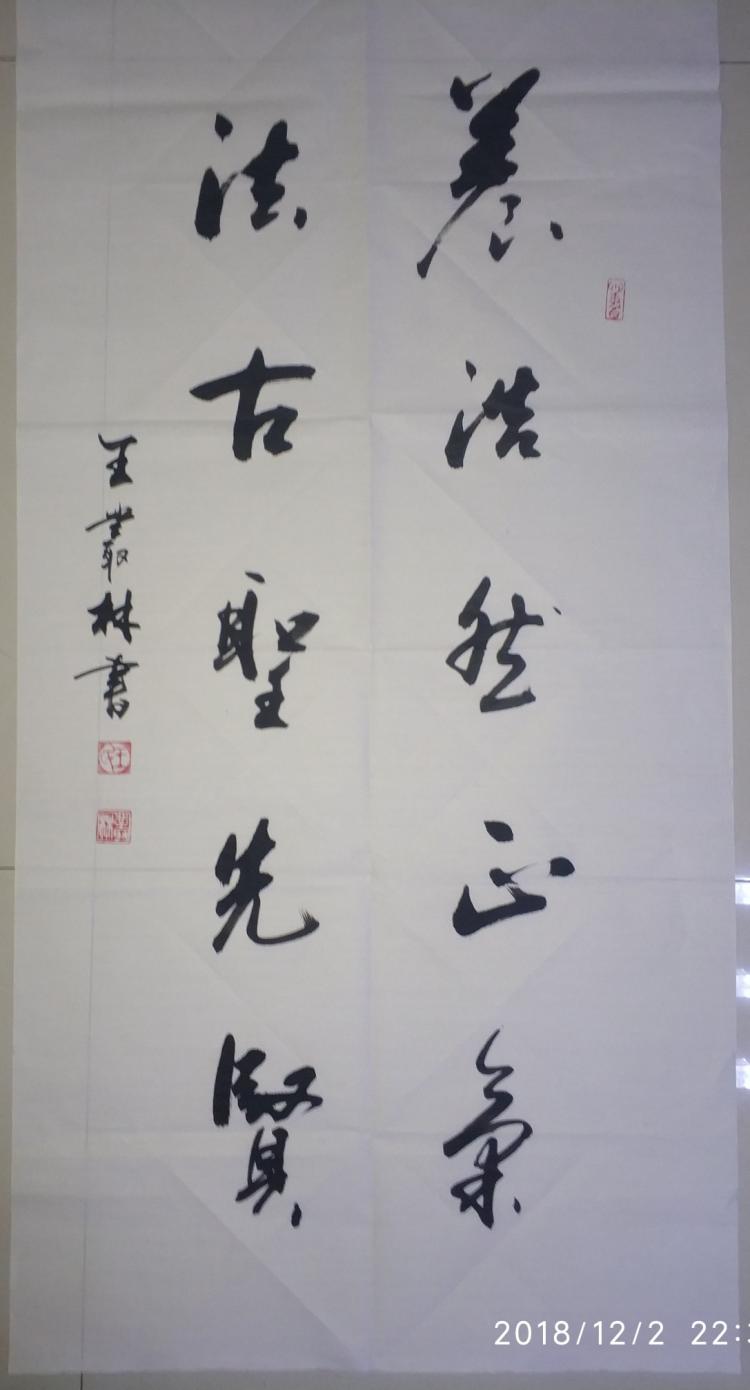 養浩然正氣
法古聖先賢
王叢林書
2018/12/2 22:3